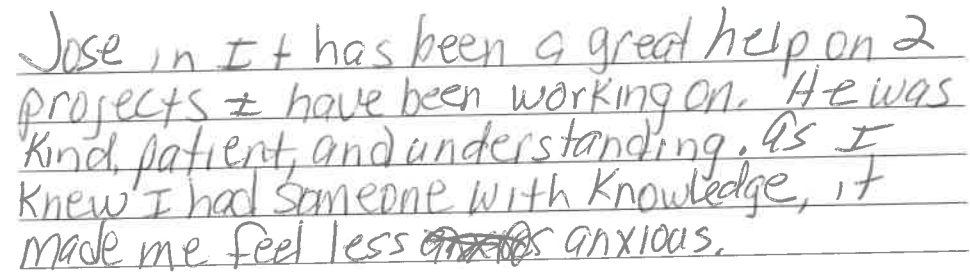 Jose in It has been a great help on 2
projects I have been working on. He was
kind, patient, and understanding. as I
knew I had someone with knowledge, it
made me feel less anxious.